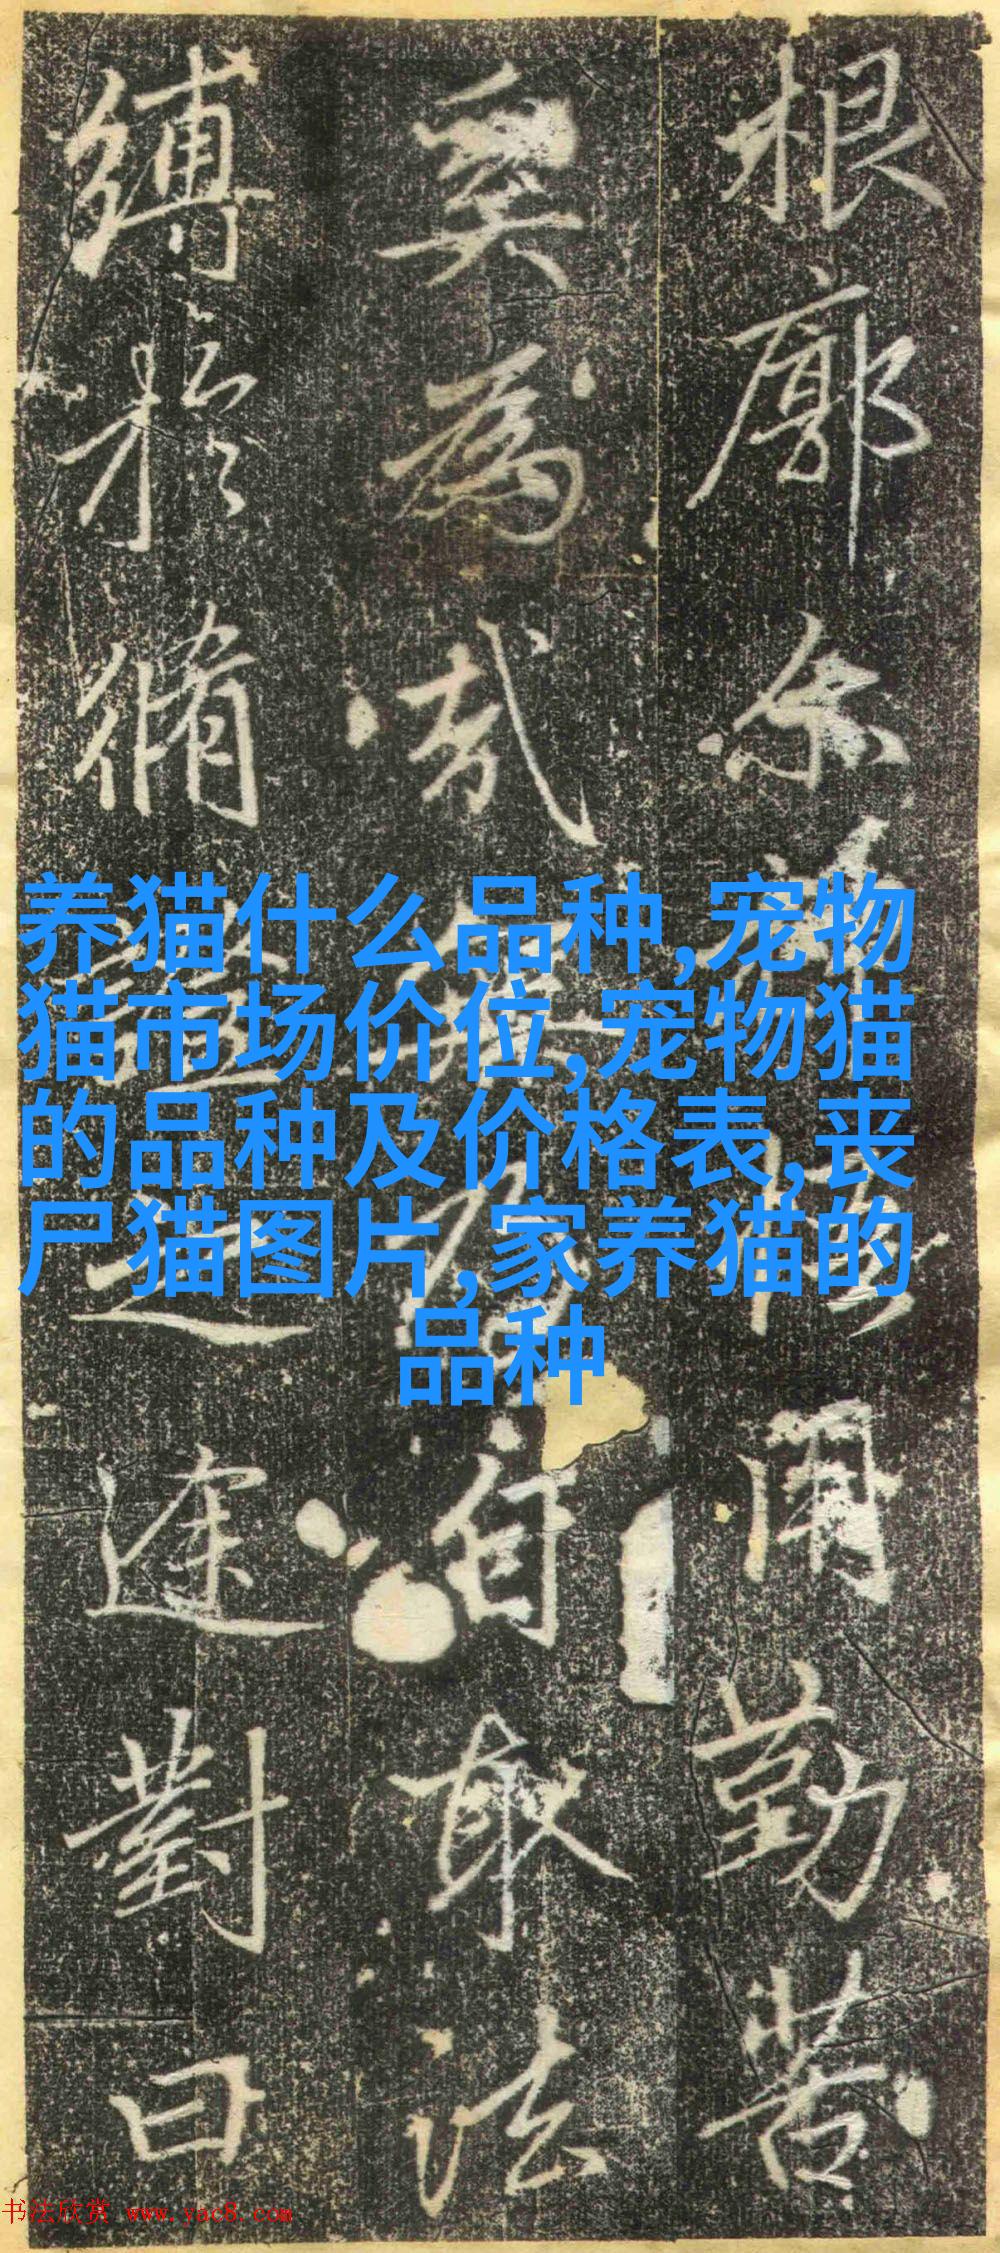 根廓尔
用勤苦
奚為哉
自取法
縛於脩
之途對曰
养猫什么品种,宠物
猫市场价位,宠物猫
的品种及价格表,丧
尸猫图片,家养猫的
品种
书法欣赏 www.yac8.com